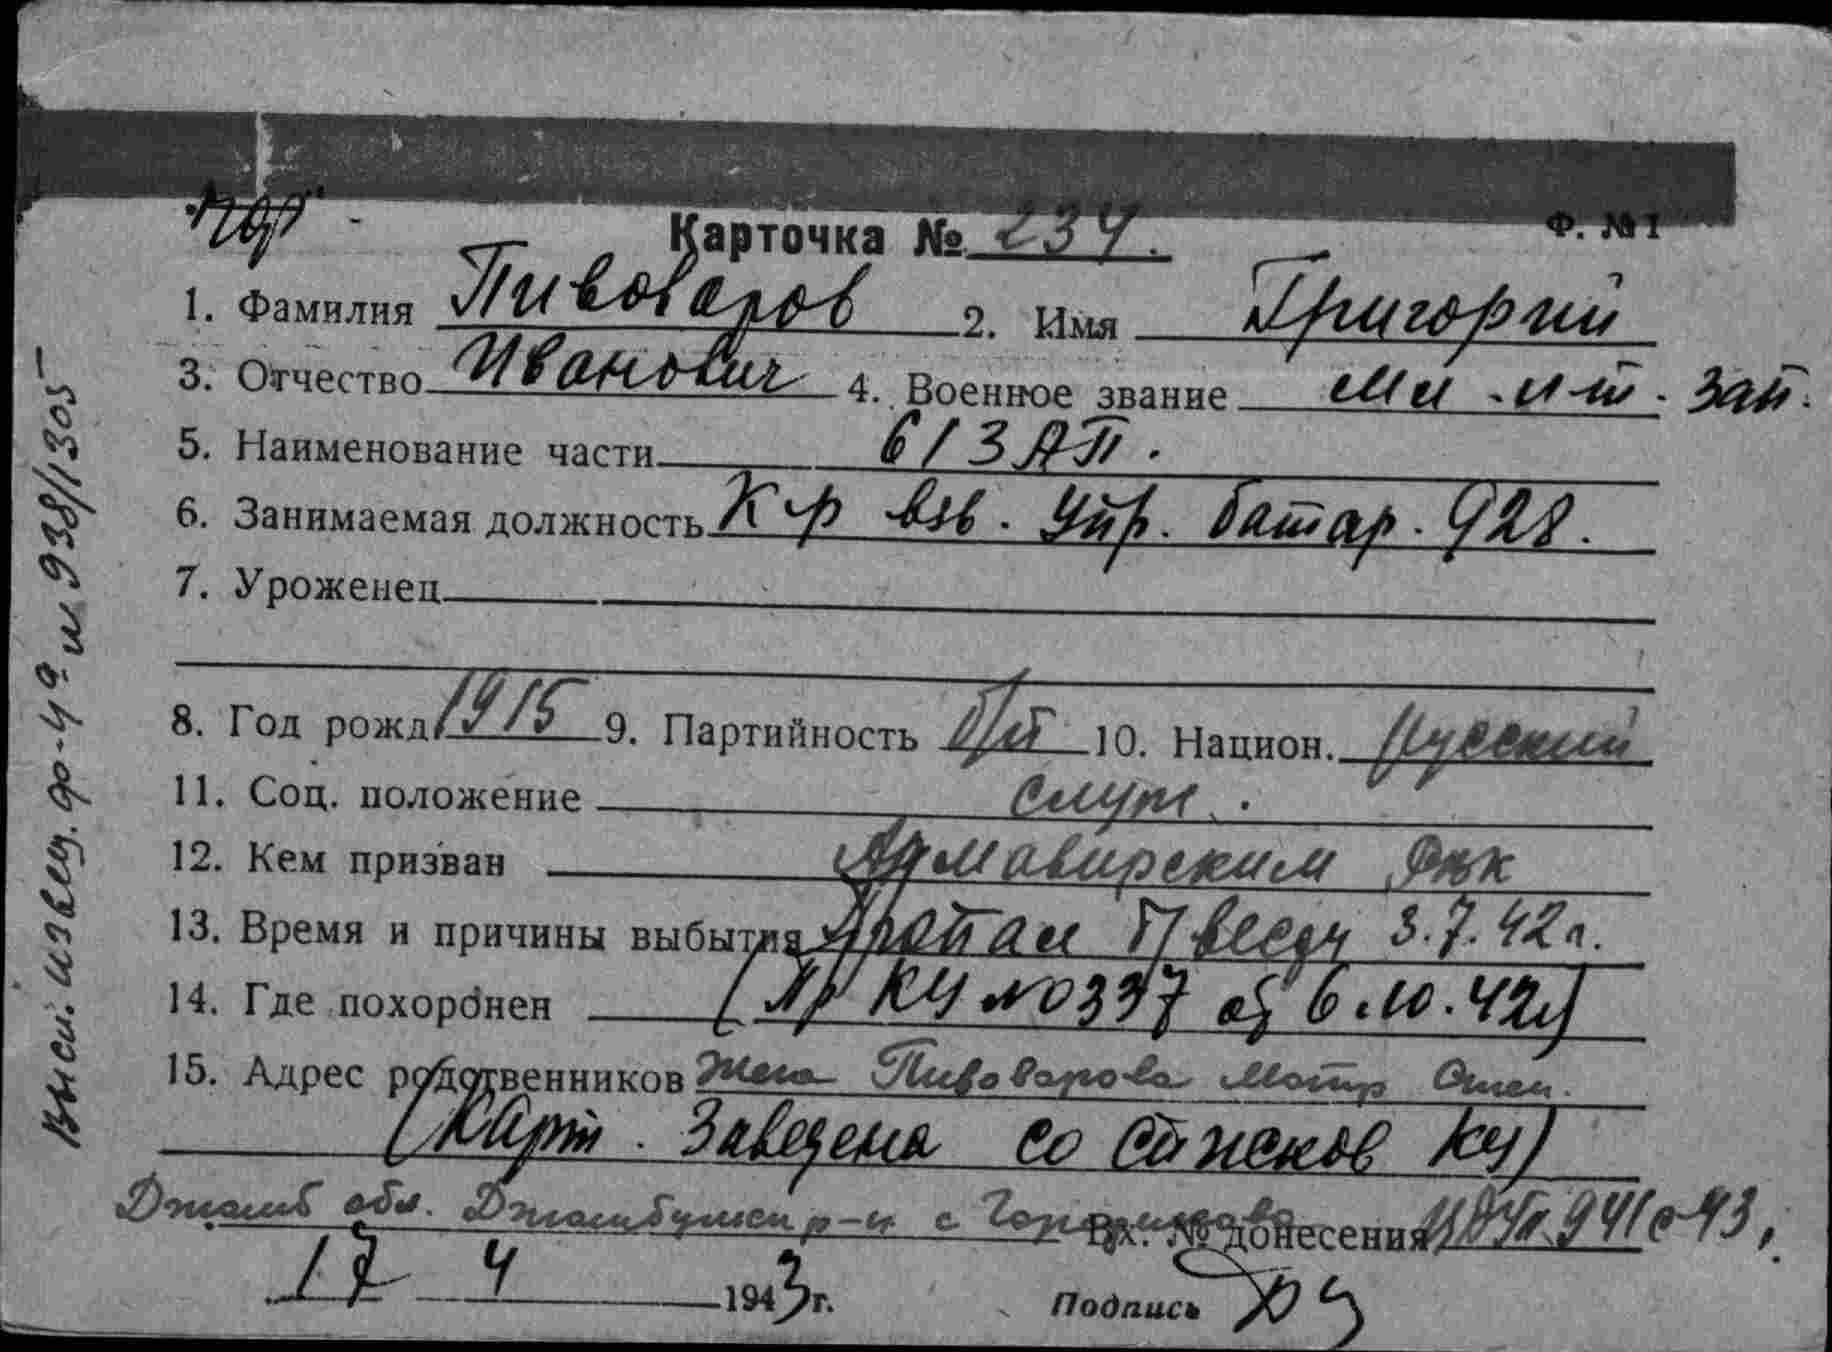 Карточка № 234.
Ф. № 1
1. Фамилия Пивоваров 2. Имя Григорий
3. Отчество Иванович 4. Военное звание мл. л-т. зап.
5. Наименование части 613 АП.
6. Занимаемая должность К-р взв. упр. батар. 928.
7. Уроженец
8. Год рожд. 1915 9. Партийность б/п 10. Национ. русский
11. Соц. положение служ.
12. Кем призван Армавирским РВК
13. Время и причины выбытия Пропал б/весты 3.7.42 г.
14. Где похоронен (Пр КЧ №0337 от 6.10.42 г)
15. Адрес родственников Жена Пивоварова Матр Степ.
(Карт. Заведена со списков КЧ)
Джамб обл. Джамбулск р-н с
Вх. № донесения 941с-43.
17 4 1943 г.
Подпись
Выси. извещ. ф-4а и 938/1305